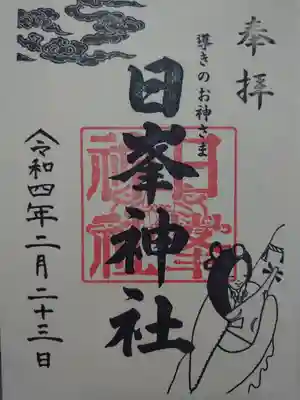 奉拝
導きのお神さま
日峯神社
日峯
神社
令和四年二月二十三日